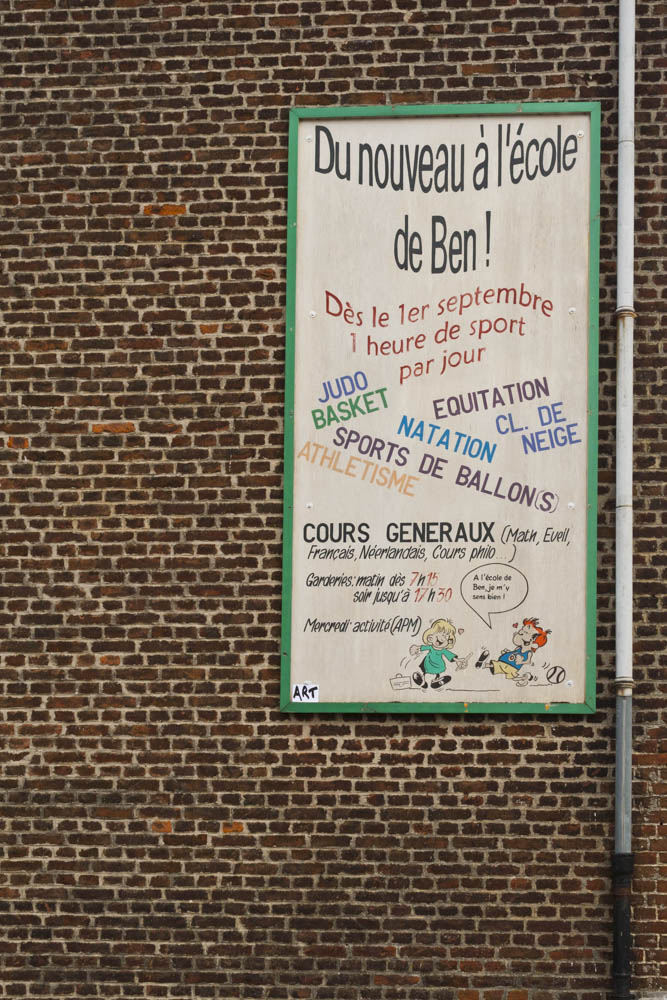 Du nouveau à l'école
de Ben !
Dès le 1er septembre
1 heure de sport
par jour
JUDO
BASKET
EQUITATION
CL. DE
NEIGE
NATATION
SPORTS DE BALLON(S)
ATHLETISME
COURS GENERAUX (Math, Eveil,
Français, Néerlandais, Cours philo...)
Garderies: matin dès 7h15
soir jusqu'à 17h30
A l'école de
Ben, je m'y
sens bien !
Mercredi: activité (APM)
ART